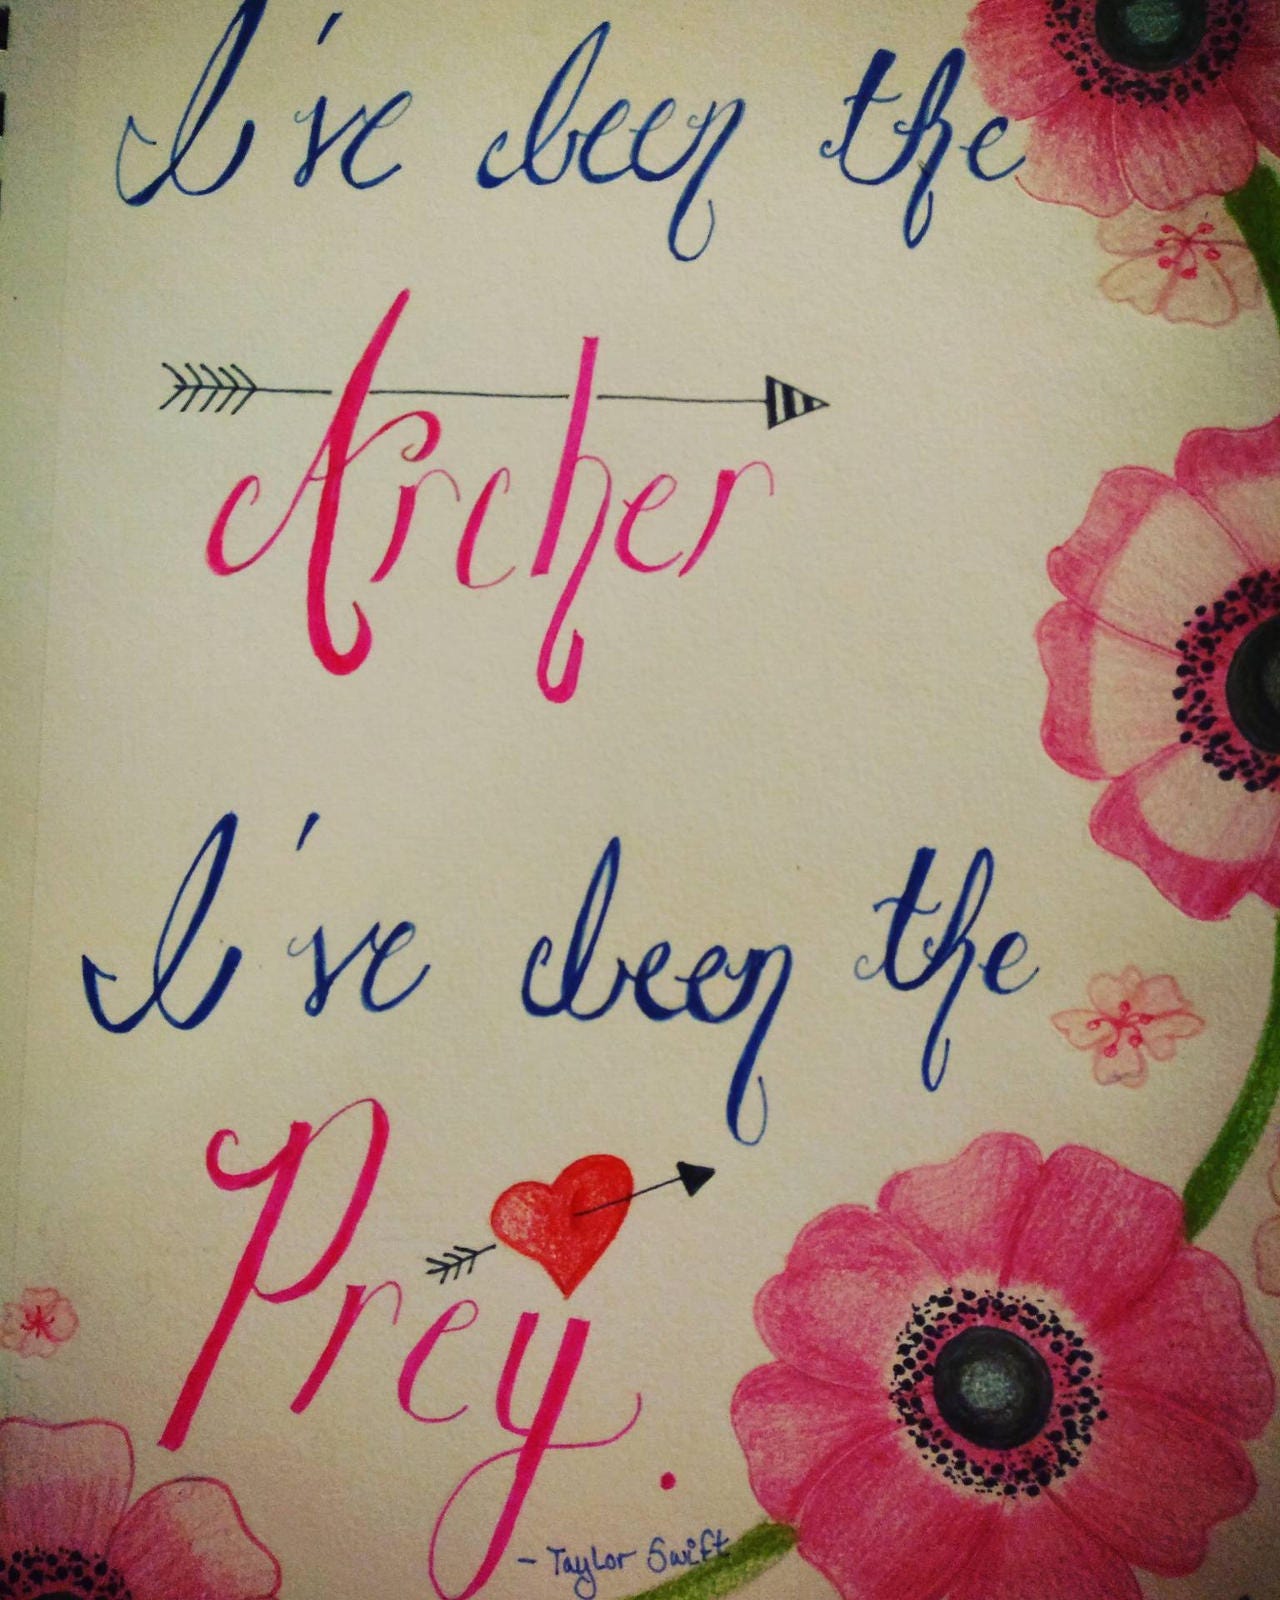 I've been the
Archer
I've been the
Prey.
- Taylor Swift